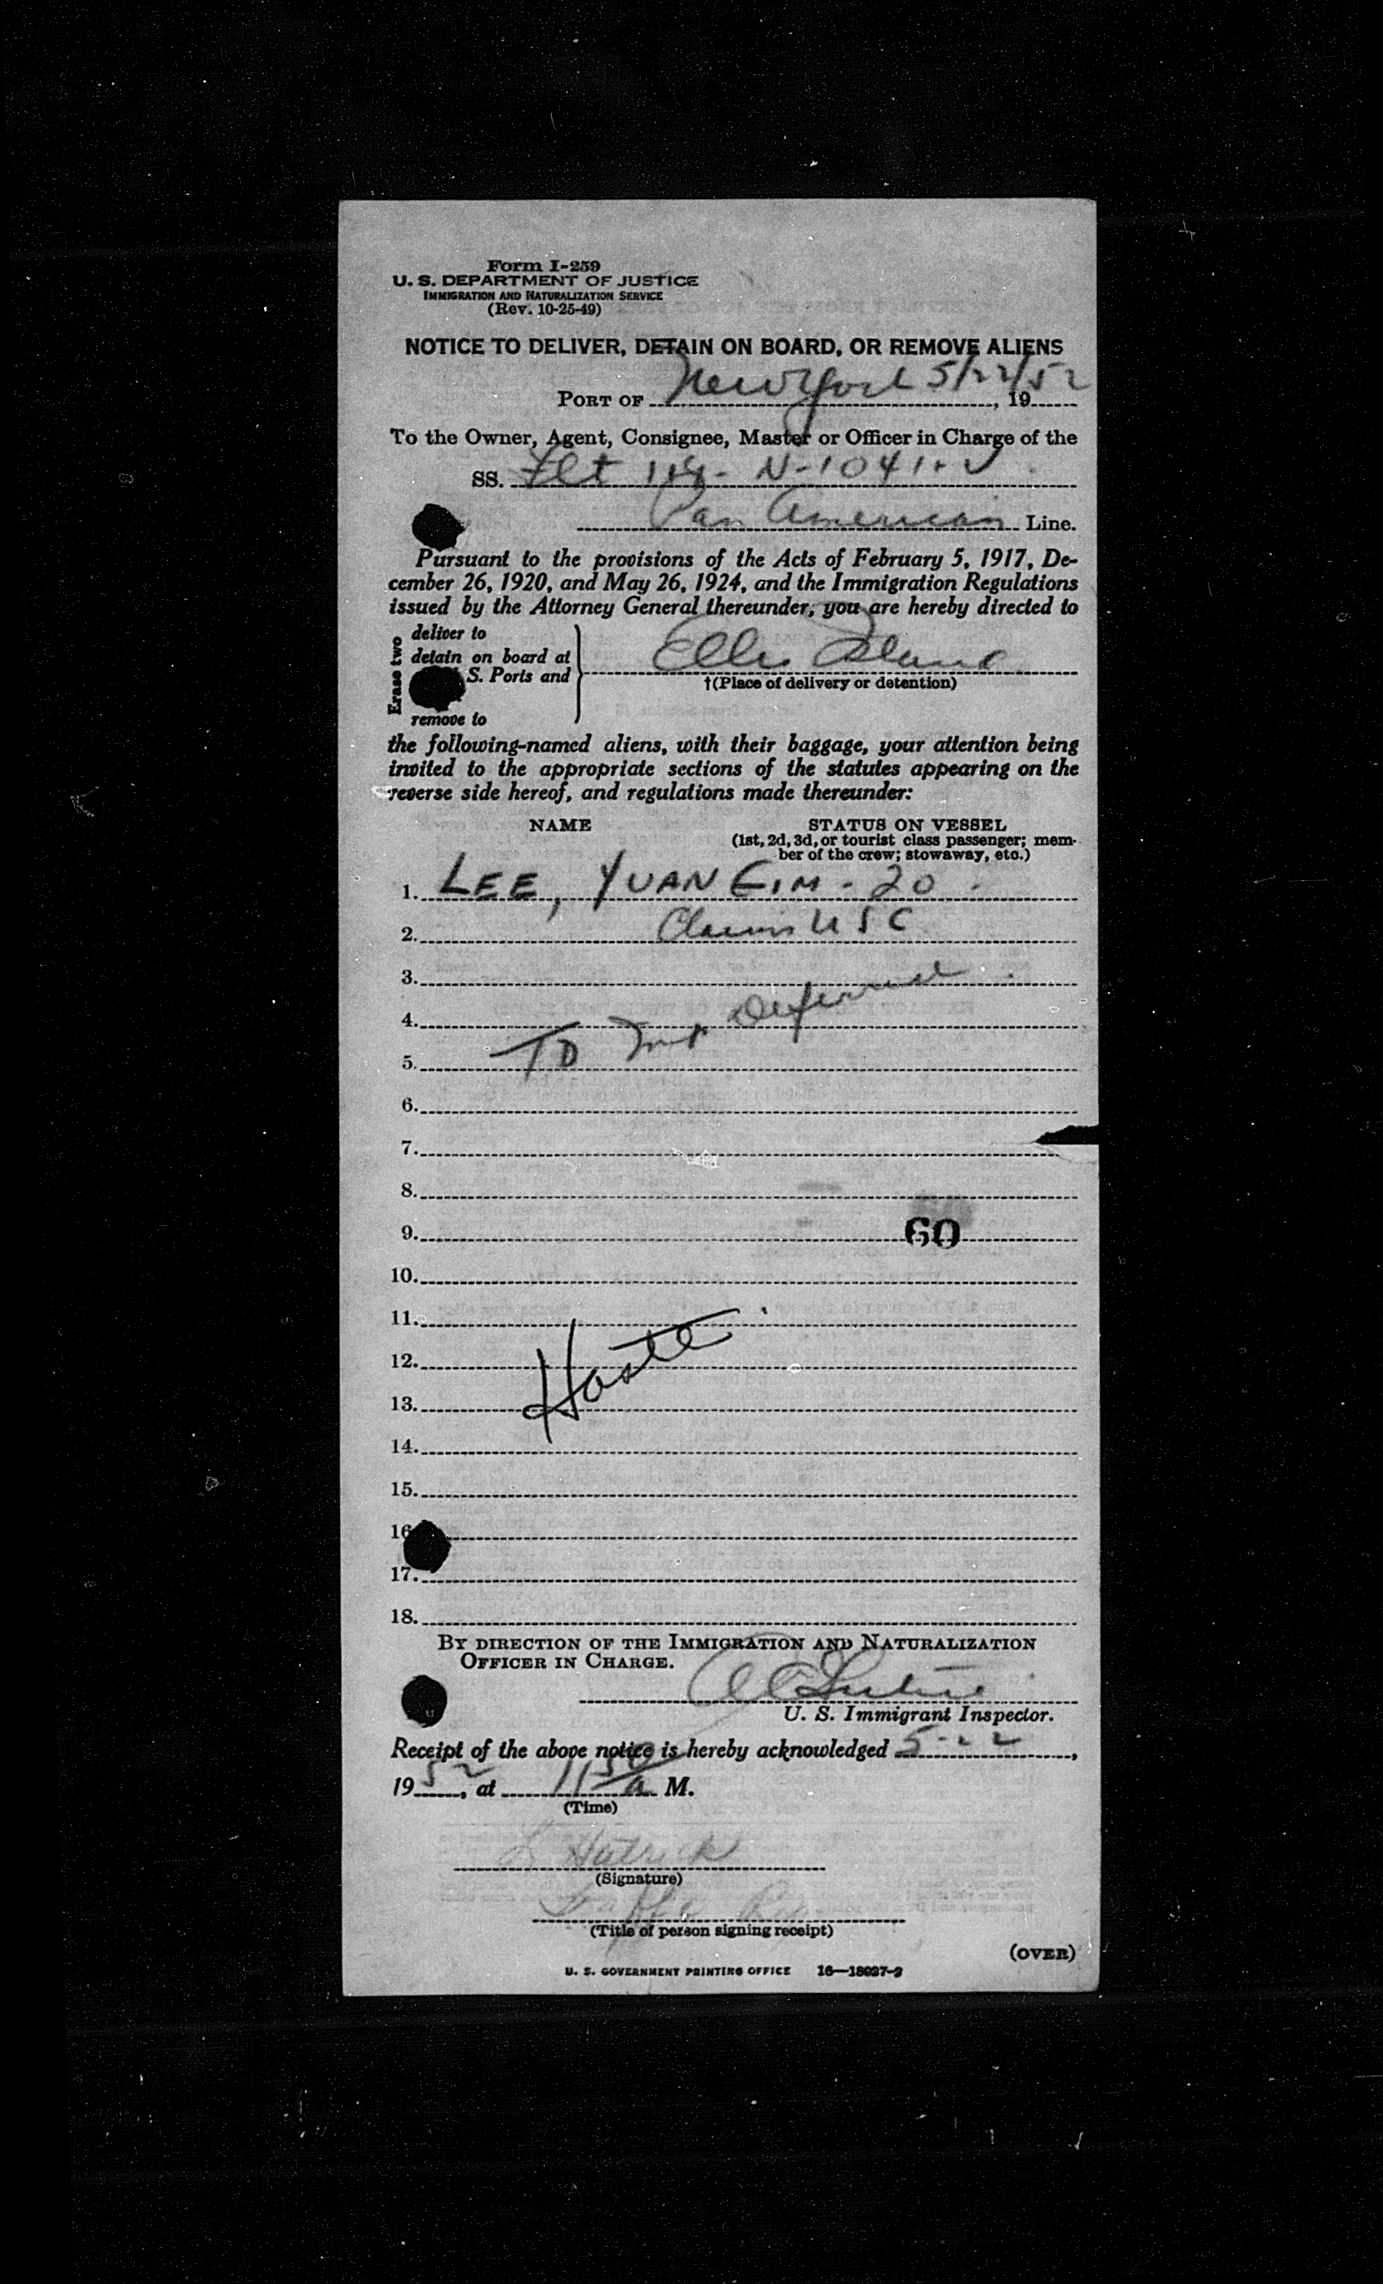 Form I-259
U. S. DEPARTMENT OF JUSTICE
IMMIGRATION AND NATURALIZATION SERVICE
(Rev. 10-25-49)
NOTICE TO DELIVER, DETAIN ON BOARD, OR REMOVE ALIENS
PORT OF New York 5/22/52, 19
To the Owner, Agent, Consignee, Master or Officer in Charge of the
SS. Flt
Pan American Line.
Pursuant to the provisions of the Acts of February 5, 1917, De-
cember 26, 1920, and May 26, 1924, and the Immigration Regulations
issued by the Attorney General thereunder, you are hereby directed to
Erase two
deliver to
detain on board at
S. Ports and
remove to
Ellis Island
†(Place of delivery or detention)
the following-named aliens, with their baggage, your attention being
invited to the appropriate sections of the statutes appearing on the
reverse side hereof, and regulations made thereunder:
NAME STATUS ON VESSEL
(1st, 2d, 3d, or tourist class passenger; mem-
ber of the crew; stowaway, etc.)
1. LEE, YUAN - 20
2. Claims USC
3.
4. Deferred
5. TD
6.
7.
8.
9. 60
10.
11.
12.
13.
14.
15.
16
17.
18.
BY DIRECTION OF THE IMMIGRATION AND NATURALIZATION
OFFICER IN CHARGE.
U. S. Immigrant Inspector.
Receipt of the above notice is hereby acknowledged 5-22,
1952, at 1150 a M.
(Time)
(Signature)
(Title of person signing receipt)
(OVER)
U. S. GOVERNMENT PRINTING OFFICE 16—18027-2